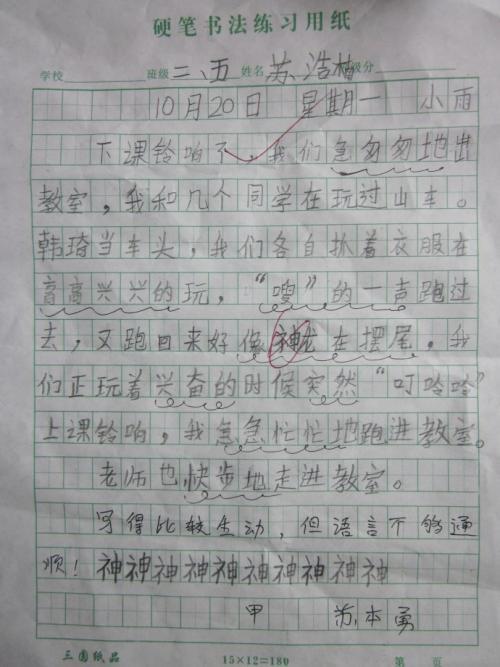 硬笔书法练习用纸
学校 班级 二、五 姓名 苏浩楠 级分
10月20日 星期一 小雨
下课铃响了，我们急匆匆地出
教室，我和几个同学在玩过山车。
韩琦当车头，我们各自扒着衣服在
高高兴兴的玩，“嗖”的一声跑过
去，又跑回来好像神龙在摆尾。我
们正玩着兴奋的时候突然“叮哈哈”
上课铃响，我急急忙忙地跑进教室。
老师也快步地走进教室。
写得比较生动，但语言不够通
顺！神神神神神神神神神神
甲 苏本勇
三圆纸品 15×12=180 第 页